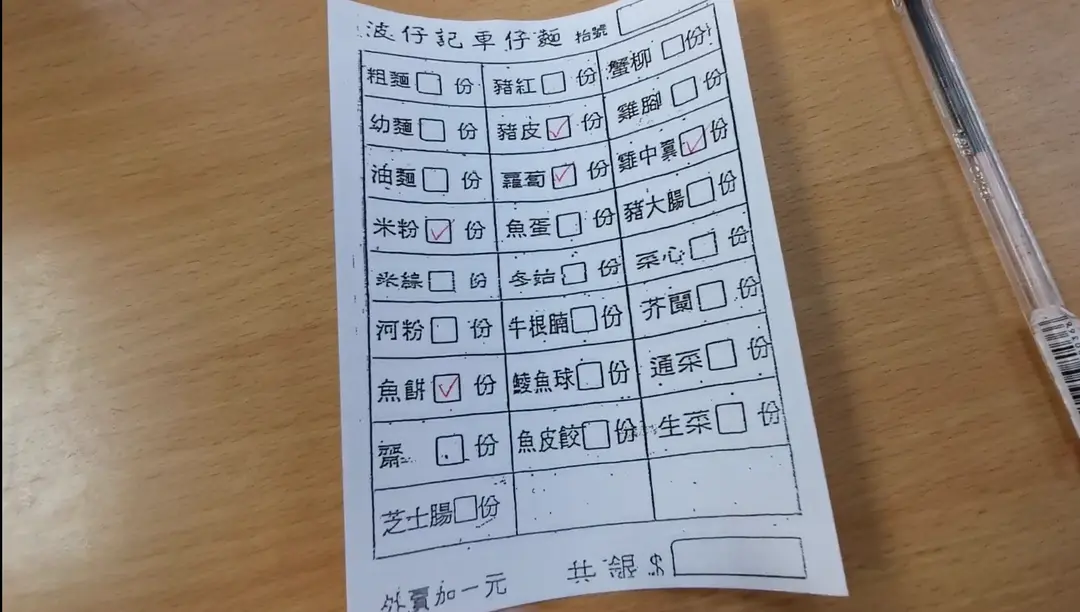 波仔記車仔麵 抬號
粗麵 份 豬紅 份 蟹柳 份
幼麵 份 豬皮 ✓ 份 雞腳 份
油麵 份 蘿蔔 ✓ 份 雞中翼 ✓ 份
米粉 ✓ 份 魚蛋 份 豬大腸 份
米線 份 冬菇 份 菜心 份
河粉 份 牛根腩 份 芥蘭 份
魚餅 ✓ 份 鯪魚球 份 通菜 份
齋 份 魚皮餃 份 生菜 份
芝士腸 份
外賣加一元 共銀 $